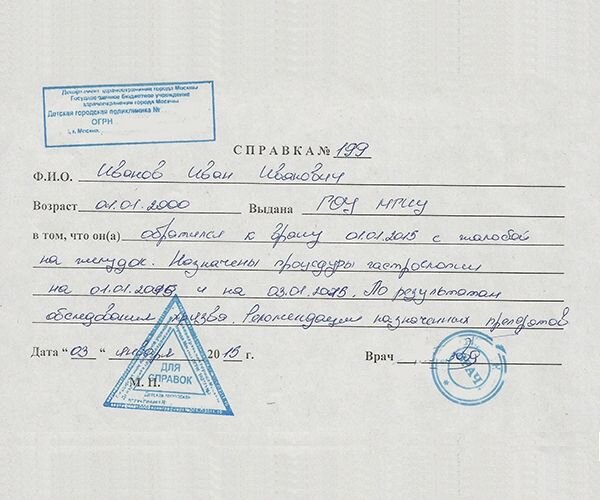 Департамент здравоохранения города Москвы
Государственное бюджетное учреждение
здравоохранения города Москвы
Детская городская поликлиника №
ОГРН
г. Москва
СПРАВКА № 199
Ф.И.О. Иванов Иван Иванович
Возраст 01.01.2000 Выдана ГОУ
в том, что он(а) обратился к врачу 01.01.2015 с жалобой
на желудок. Назначены процедуры гастроскопии
на 01.01.2015 и на 03.01.2015. По результатам
обследования язва. Рекомендации назначенных препаратов
Дата “03 “ января 2015 г. Врач
М. П.
ДЛЯ
СПРАВОК
ВРАЧ